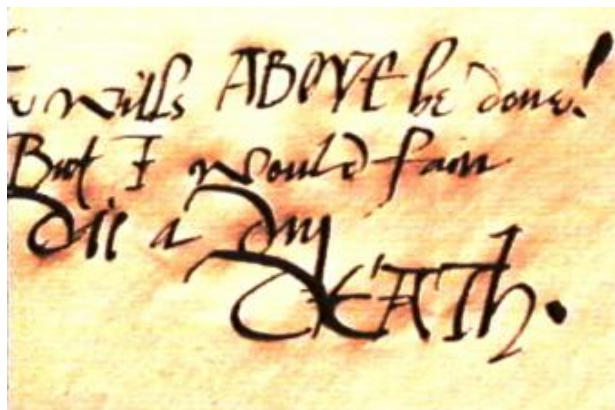 wills ABOVE be done!
But I would fain
die a dry
DEATH.